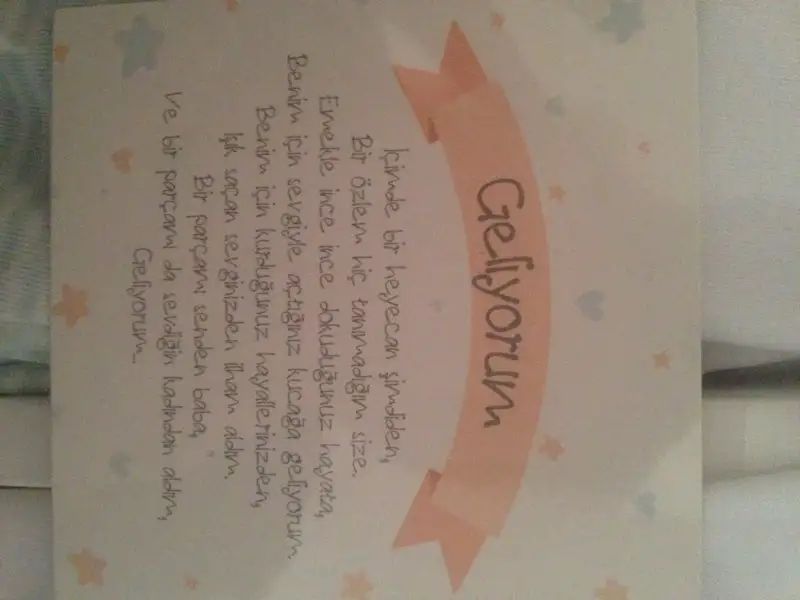 Geliyorum
İçimde bir heyecan şimdiden,
Bir özlem hiç tanımadığım size.
Emekle ince ince dokuduğunuz hayata,
Benim için sevgiyle açtığınız kucağa geliyorum.
Benim için kurduğunuz hayallerinizden,
Işık saçan sevginizden ilham aldım.
Bir parçamı senden baba,
Ve bir parçamı da sevdiğin kadından aldım,
Geliyorum.